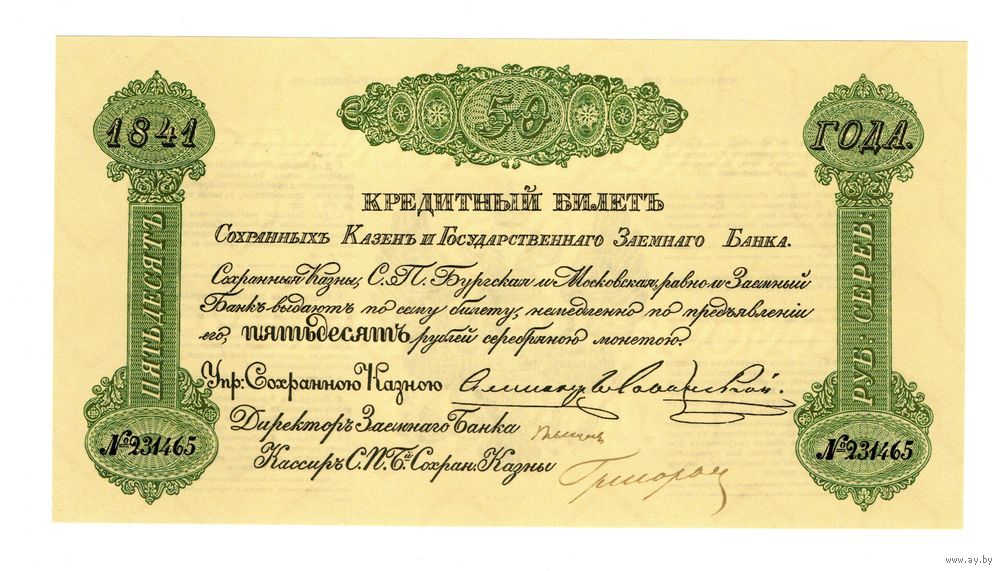 1841
50
ГОДА.
КРЕДИТНЫЙ БИЛЕТЪ
СОХРАННЫХЪ КАЗЕНЪ И ГОСУДАРСТВЕННАГО ЗАЕМНАГО БАНКА.
Сохранныя Казны, С. П. Бургская и Московская, равно и Заемный
Банкъ выдаютъ по сему билету, немедленно по предъявленіи
его, ПЯТЬДЕСЯТЪ рублей серебряною монетою.
Упр: Сохранною Казною
Директоръ Заемнаго Банка
Кассиръ С. П. Бй Сохран: Казны
ПЯТЬДЕСЯТЪ
РУБ: СЕРЕБ:
№ 231465
№ 231465
www.ay.by